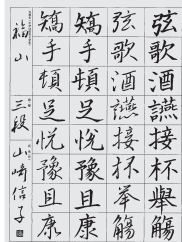 弦歌酒讌接杯舉觴
弦歌酒讌接杯举觴
矯手頓足悦豫且康
矯手頓足悦豫且康
福山 三段 山崎信子